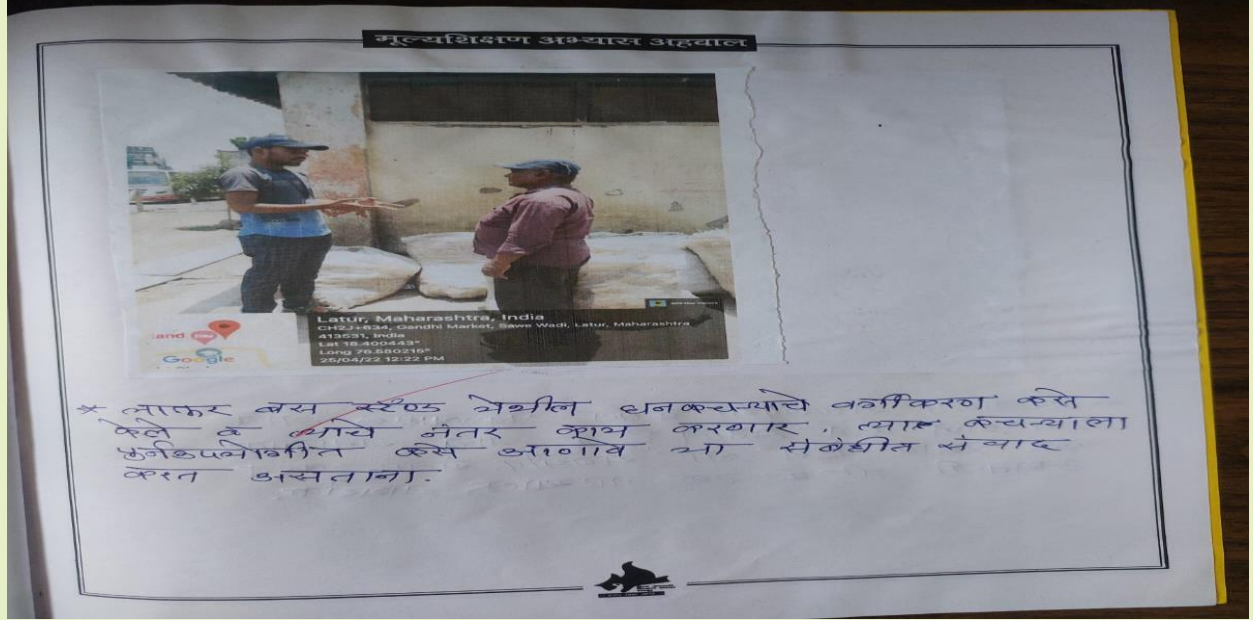 मूल्यशिक्षण अभ्यास अहवाल
Latur, Maharashtra, India
CH2J+634, Gandhi Market, Sawe Wadi, Latur, Maharashtra
413531, India
Lat 18.400443°
Long 76.580215°
25/04/22 12:22 PM
Google
* लातूर बस स्टॅण्ड येथील घनकचऱ्याचे वर्गीकरण कसे
केले व त्याचे नंतर काय करणार. त्या कचऱ्याला
कसे आणावे या संबंधीत संवाद
करत असताना.